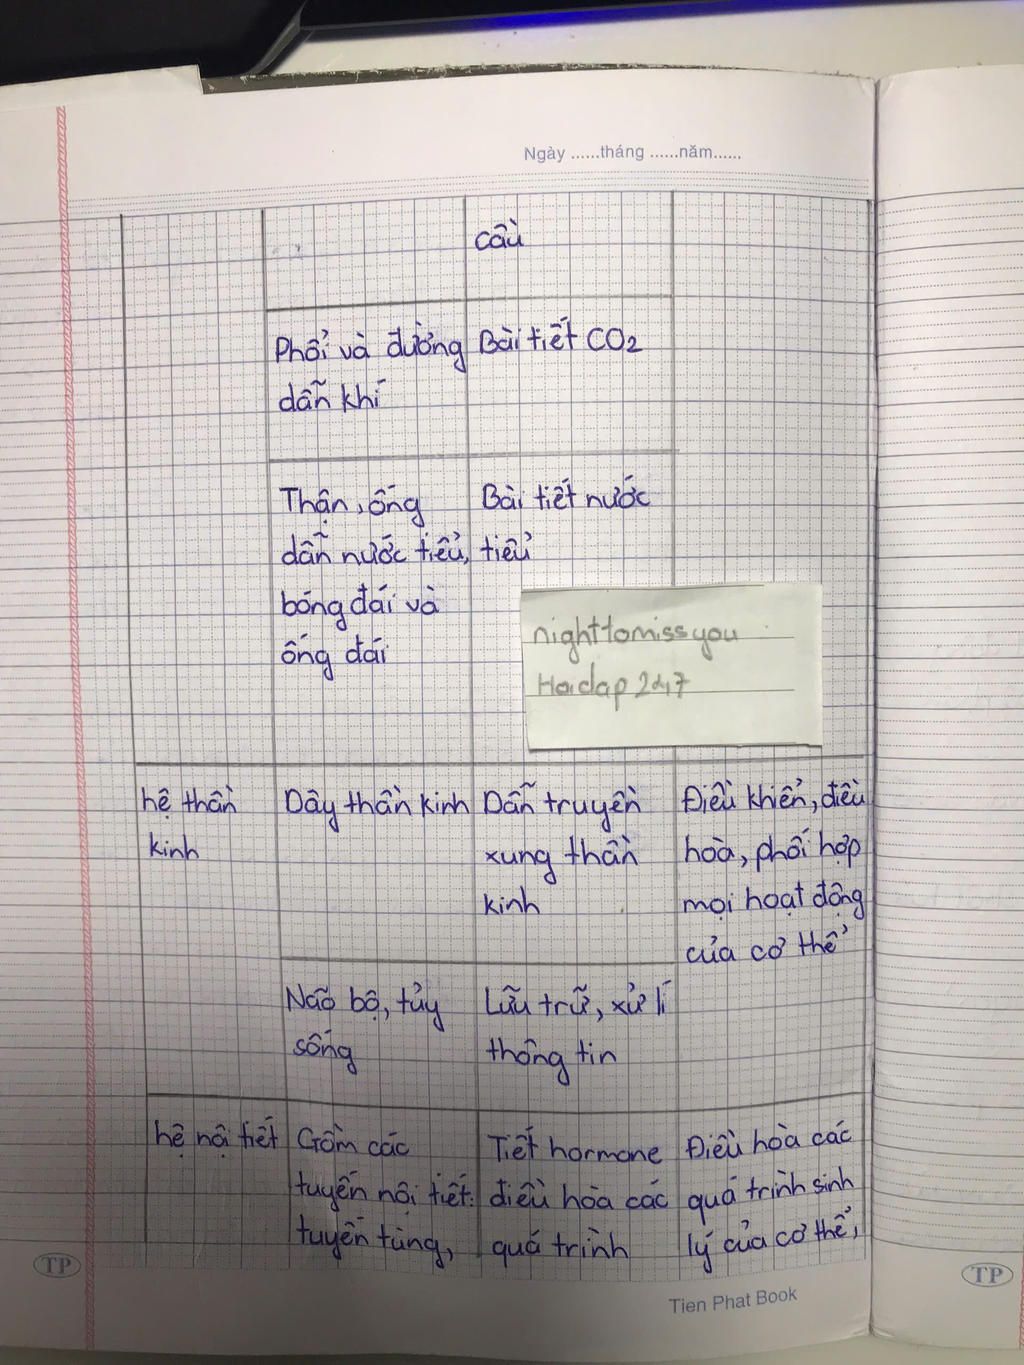 Ngày ......tháng ......năm......
cầu
Phổi và đường
dẫn khí
Bài tiết CO2
Thận, ống
dẫn nước tiểu,
bóng đái và
ống đái
Bài tiết nước
tiểu
nighttomissyou
Hoidap247
hệ thần
kinh
Dây thần kinh
Dẫn truyền
xung thần
kinh
Điều khiển, điều
hoà, phối hợp
mọi hoạt động
của cơ thể
Não bộ, tủy
sống
Lưu trữ, xử lí
thông tin
hệ nội tiết
Gồm các
tuyến nội tiết:
tuyến tùng,
Tiết hormone
điều hòa các
quá trình
Điều hòa các
quá trình sinh
lý của cơ thể,
TP
TP
Tien Phat Book